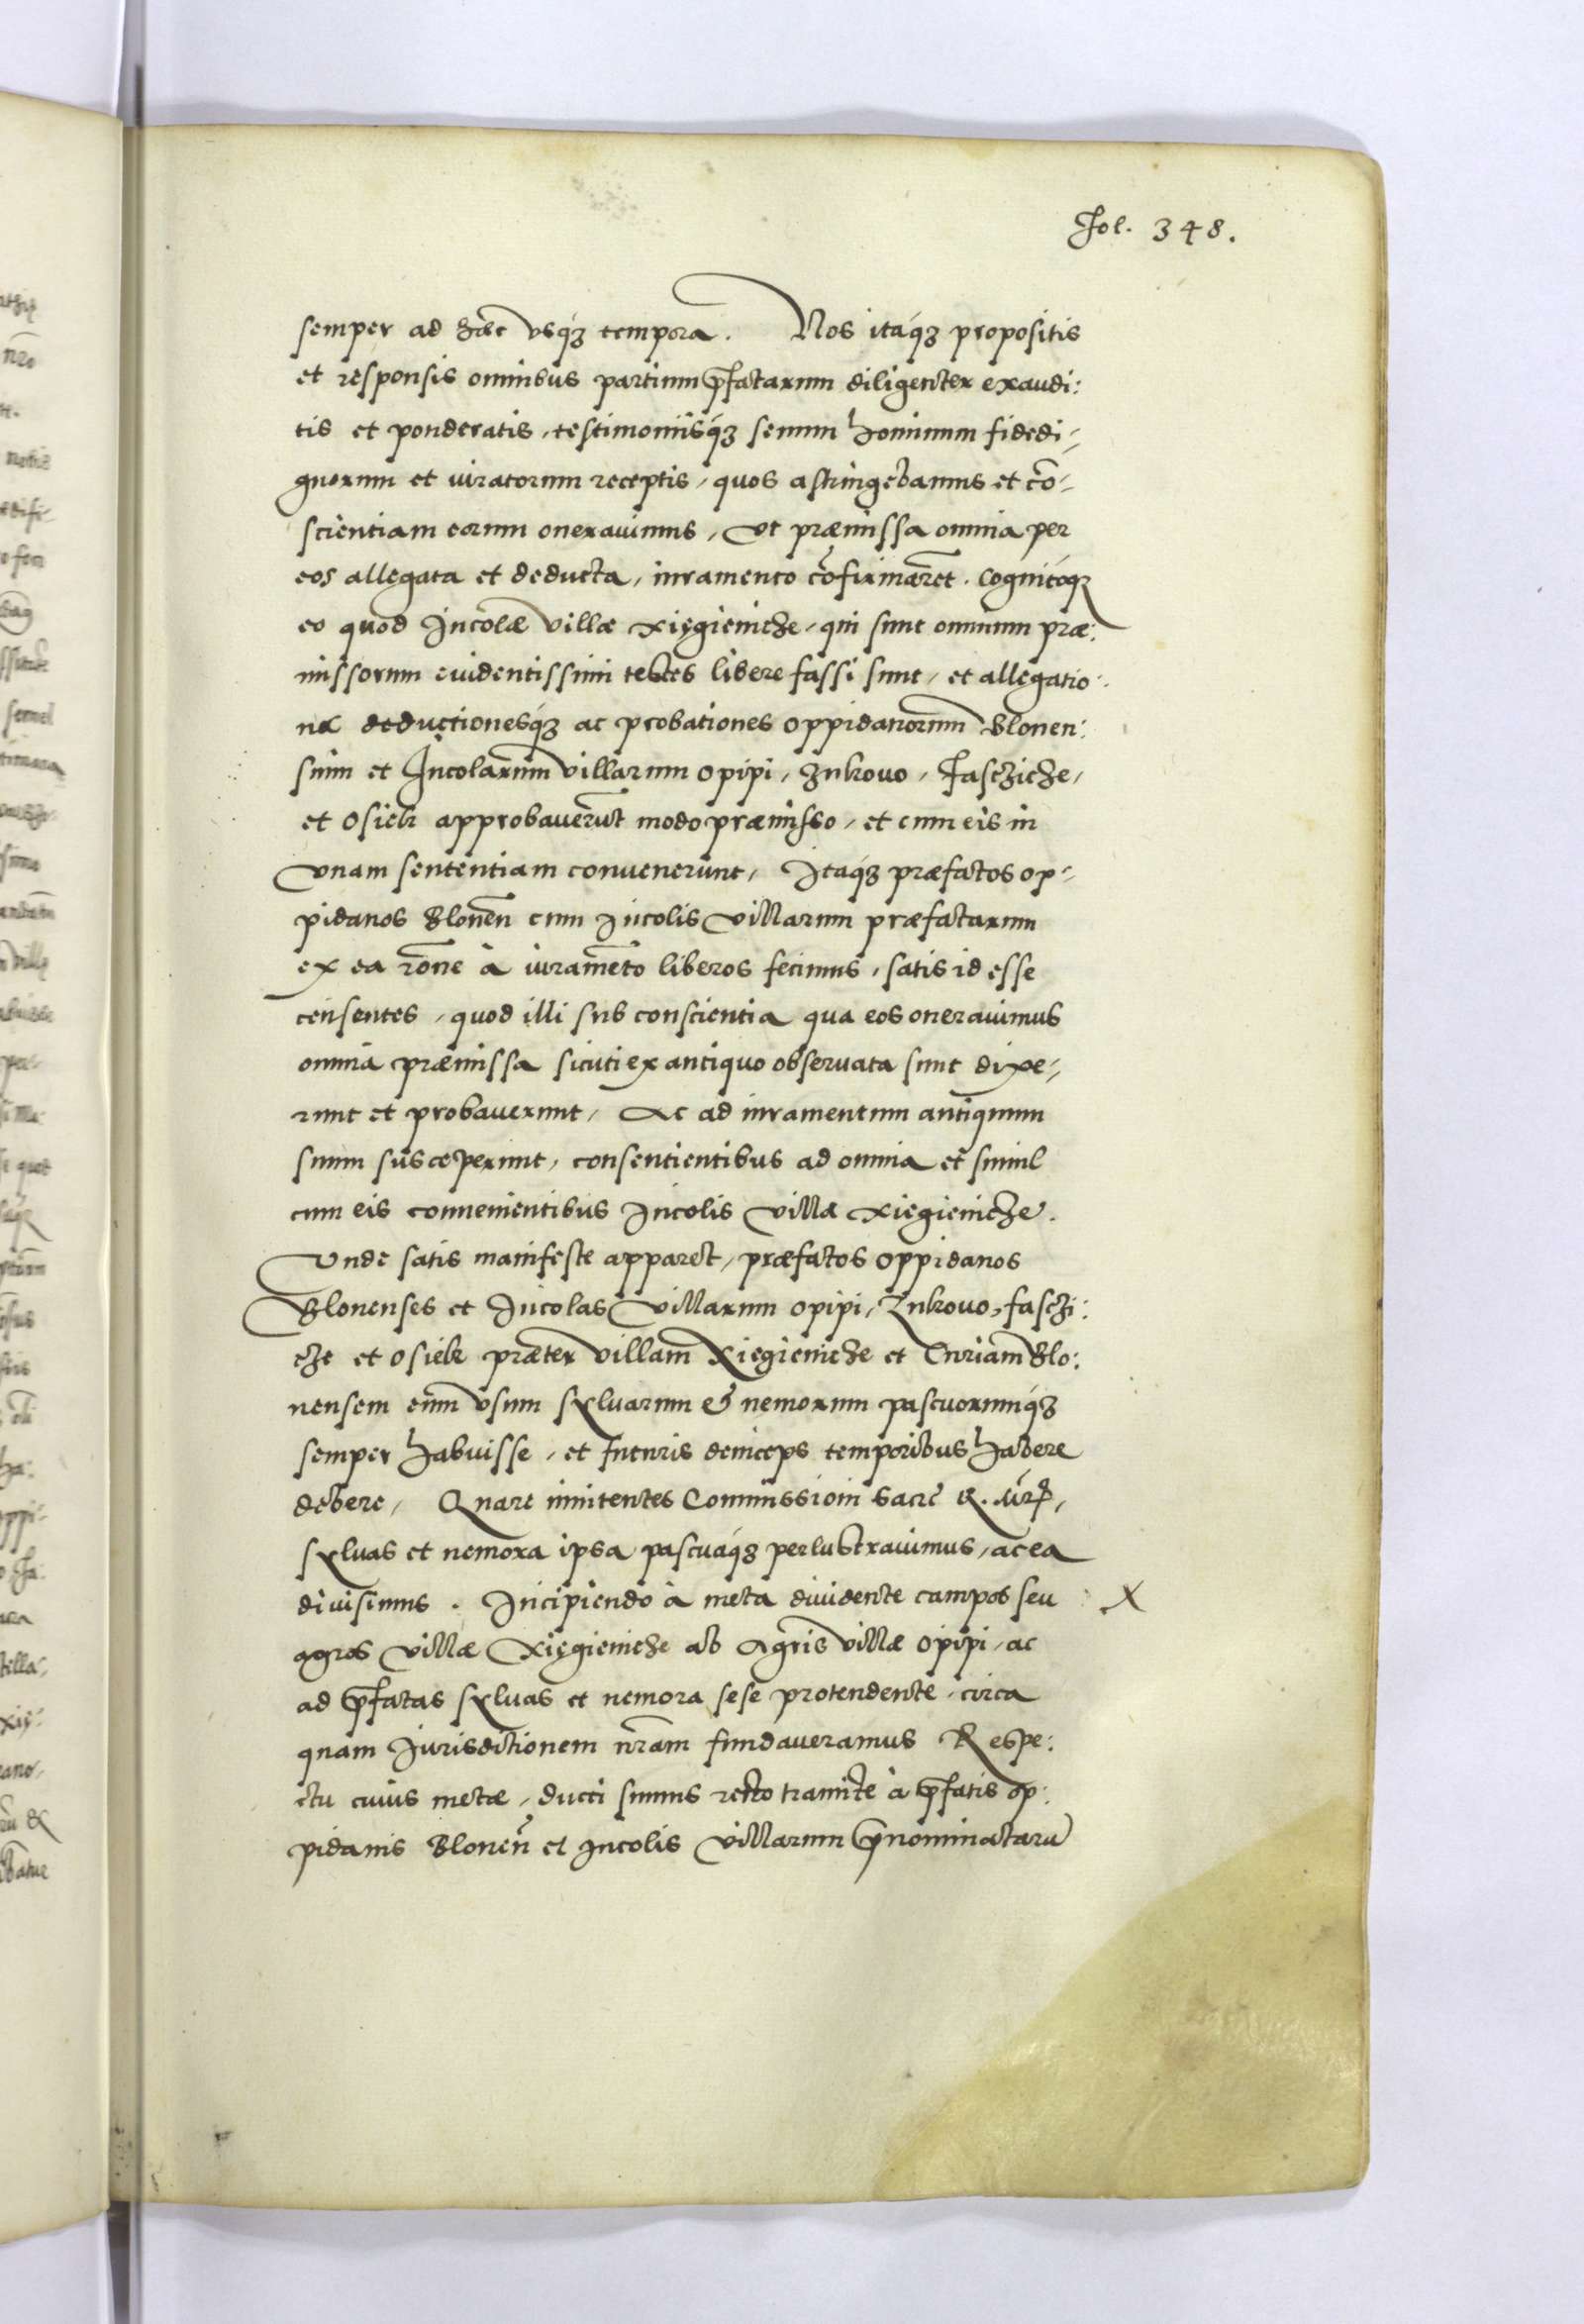 Fol. 348.
semper ad hæc vsq́ꝫ tempora. Nos itaq́ꝫ propositis
et responsis omnibus partium p̄fatarum diligenter exaudi:
tis et ponderatis, testimoniisq́ꝫ senum hominum fidedi-
gnorum et iuratorum receptis, quos astringebamus et cō-
scientiam eorum onerauimus, vt præmissa omnia per
eos allegata et deducta, iuramento cōfirmarēt. Cognitóqꝫ
eo quod Incolæ villæ Xięgieniche, qui sunt omnium præ:
missorum euidentissimi testes libere fassi sunt, et allegatio-
nes deductionesq́ꝫ ac probationes oppidanorum Blonen:
sium et Incolarum villarum Opipi, Znkouo, Faschiche,
et Osiek approbauerūt modo præmisso, et cum eis in
vnam sententiam conuenerunt, Itaq́ꝫ præfatos op-
pidanos Blonēn cum Incolis villarum præfatarum
ex ea rōne à iuramēto liberos fecimus, satis id esse
censentes, quod illi sub conscientia qua eos onerauimus
omnia præmissa sicuti ex antiquo obseruata sunt dixe-
runt et probauerunt, Ac ad iuramentum antiquum
suum susceperunt, consentientibus ad omnia et simul
cum eis conuenientibus Incolis villæ Xiegieniche.
Vnde satis manifeste apparet, præfatos oppidanos
Blonenses et Incolas villarum Opipi, Znkouo, Faschi:
che et Osiek præter villam Xiegieniche et Curiam Blo:
nensem eum vsum syluarum & nemorum pascuorumq́ꝫ
semper habuisse, et futuris deinceps temporibus habere
debere, Quare innitentes Commissioni Sacrę R.
syluas et nemora ipsa pascuaq́ꝫ perlustrauimus, ac ea
diuisimus. Incipiendo à meta diuidente campos seu X
agros villæ Xięgieniche ab Agris villæ Opipi, ac
ad p̄fatas syluas et nemora sese protendente, circa
quam Jurisdictionem nr̄am fundaueramus Respe:
ctu cuius metæ, ducti sumus recto tramite à p̄fatis op:
pidanis Blonen̄ et Incolis villarum p̄nominatarū